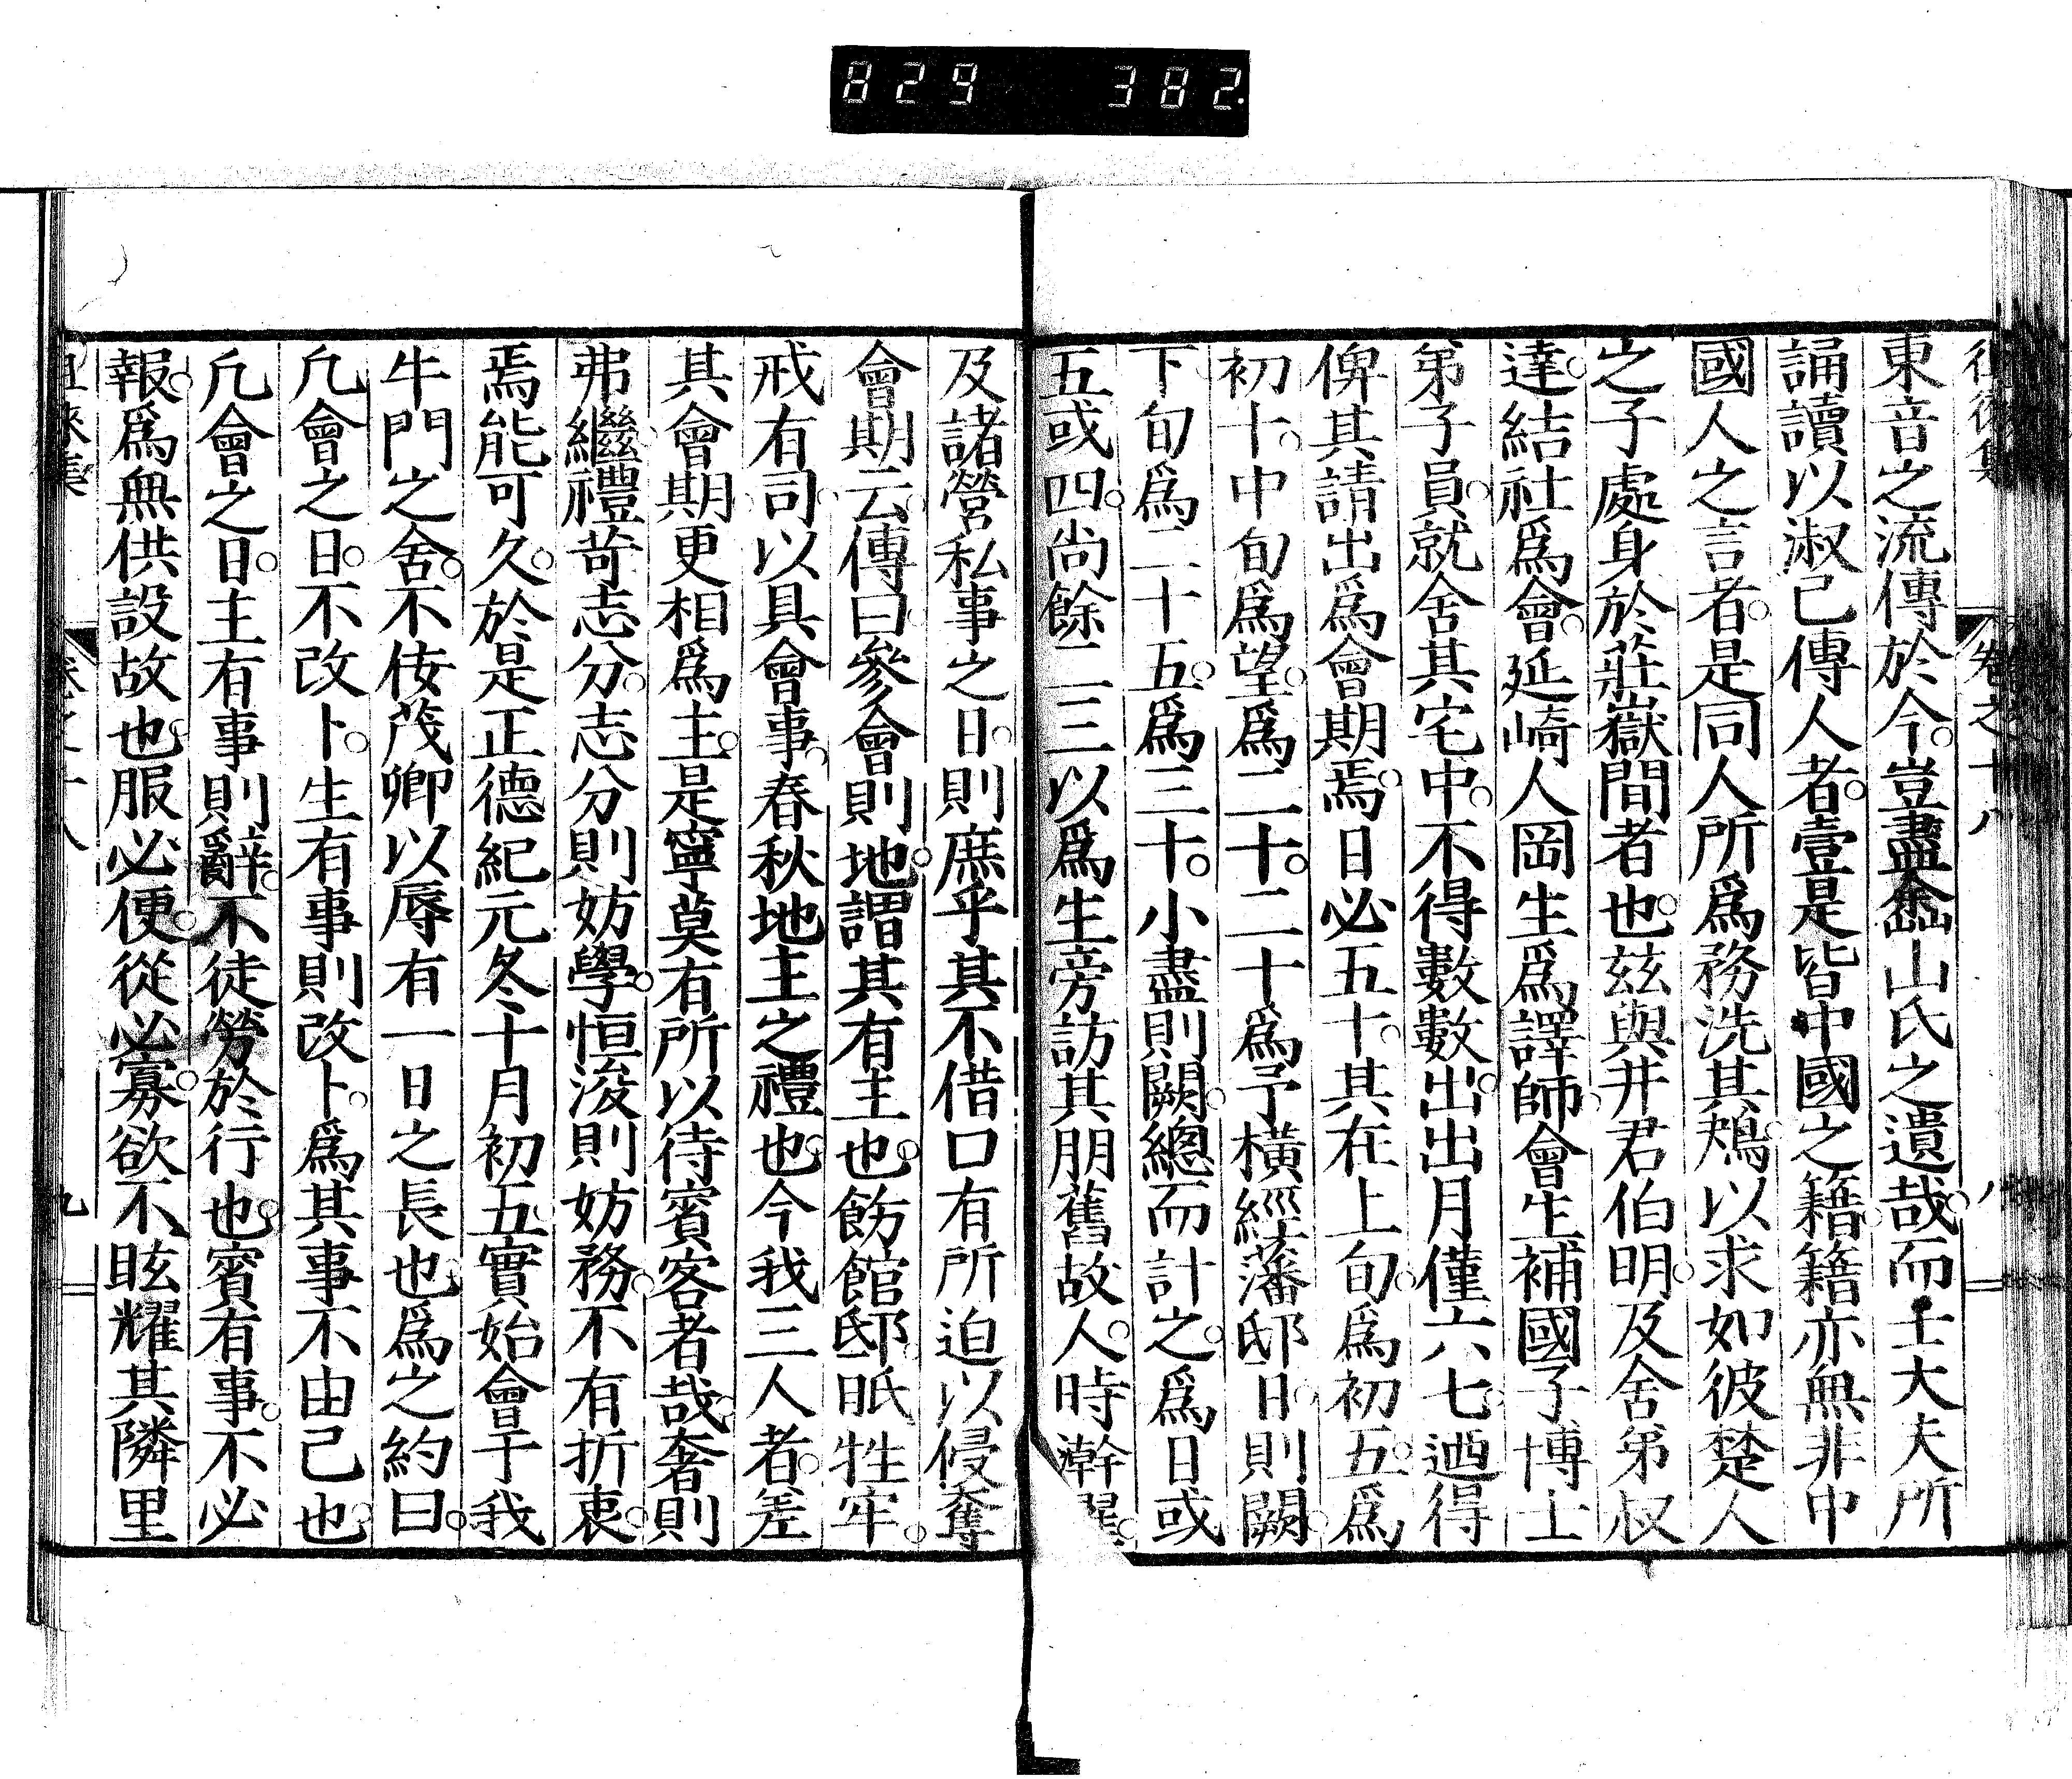 829 382
徂徠集 卷之十八 八
東音之流傳於今。豈盡崙山氏之遺哉。而士大夫所
誦讀以淑己傳人者。壹是皆中國之籍。籍亦無非中
國人之言者。是同人所爲務洗其鴂。以求如彼楚人
之子處身於莊嶽間者也。玆與井君伯明。及舍弟叔
達。結社爲會。延崎人岡生爲譯師。會生補國子博士
弟子員。就舍其宅中。不得數數出。出月僅六七。迺得
俾其請出爲會期焉。日必五十。其在上旬。爲初五。爲
初十。中旬爲望。爲二十。二十爲予橫經藩邸日。則闕。
下旬爲二十五。爲三十。小盡則闕。總而計之。爲日或
五或四。尚餘二三。以爲生旁訪其朋舊故人。時澣濯。
及諸營私事之日。則庶乎其不借口有所迫以侵奪
會期云。傳曰。參會則地。謂其有主也。飭館邸。眂牲牢。
戒有司。以具會事。春秋地主之禮也。今我三人者。差
其會期。更相爲主。是寧莫有所以待賓客者哉。奢則
弗繼。禮苛志分。志分則妨學。恒浚則妨務。不有折衷。
焉能可久。於是正德紀元冬十月初五。實始會于我
牛門之舍。不佞茂卿以辱有一日之長也。爲之約曰。
凢會之日。不改卜。生有事則改卜。爲其事不由己也。
凢會之日。主有事則辭。不徒勞於行也。賓有事。不必
報。爲無供設故也。服必便。從必寡。欲不眩耀其隣里
徂徠集 卷之十八 九